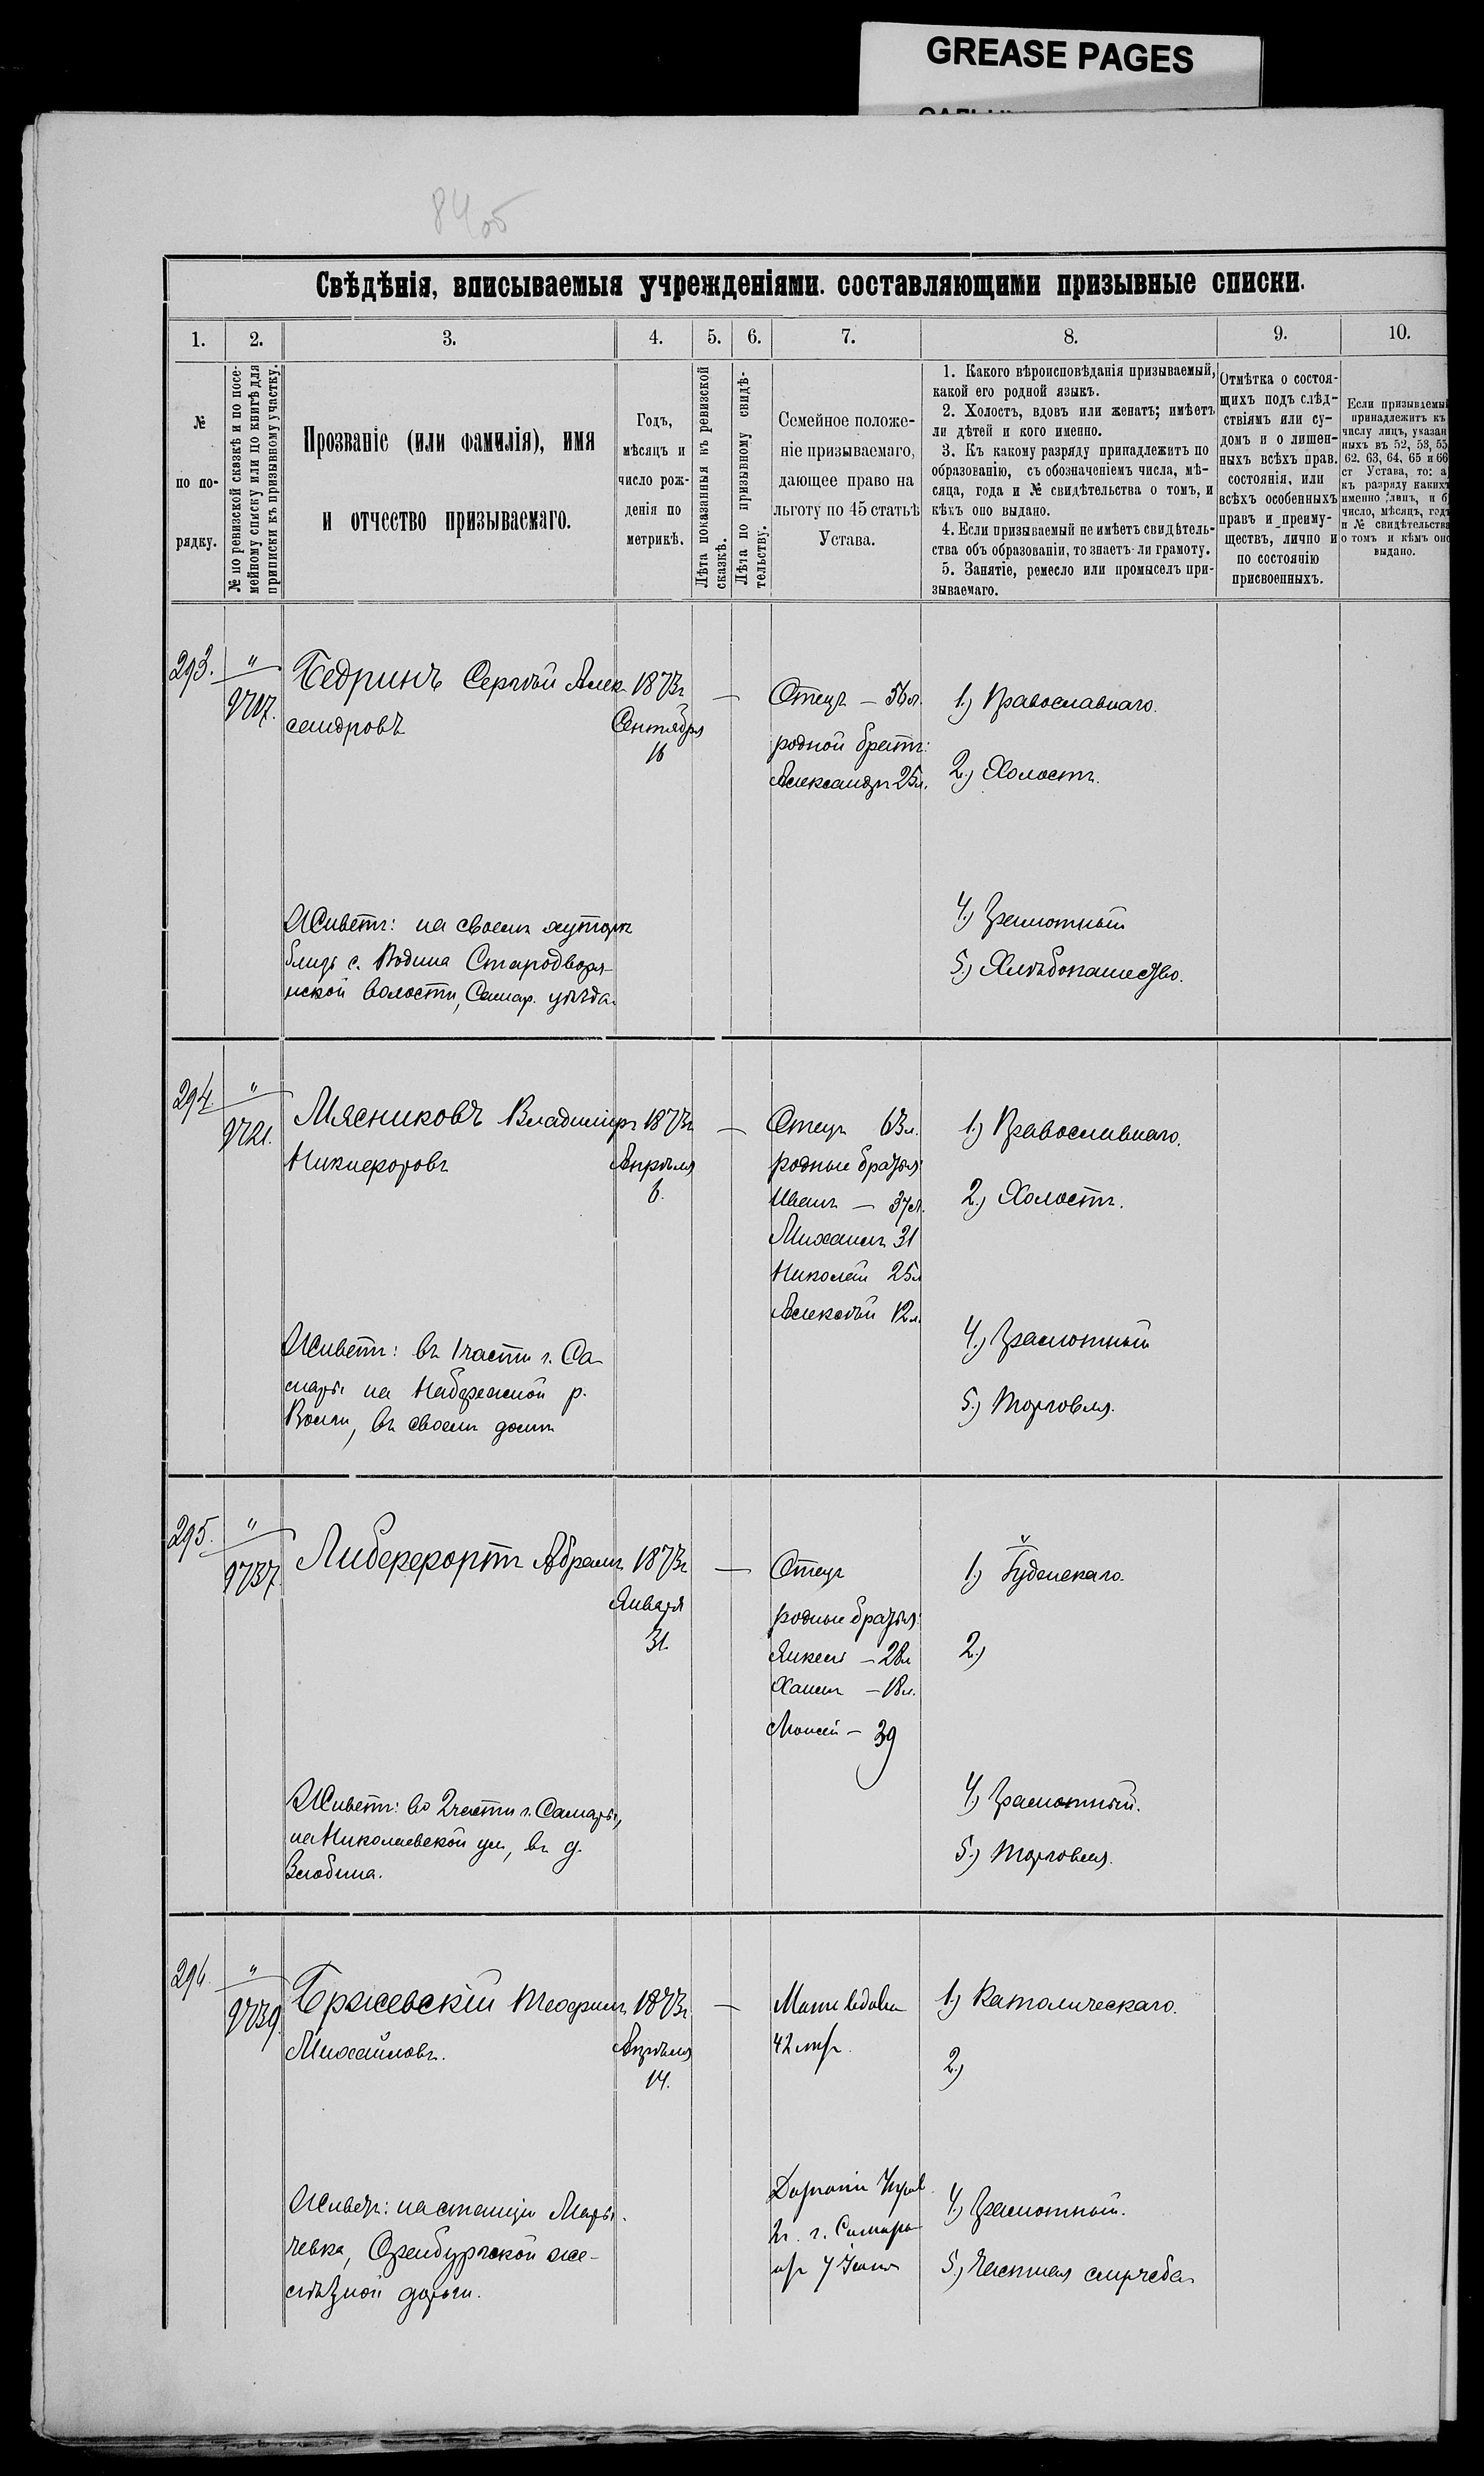 GREASE PAGES
84об
Свѣдѣнія, вписываемыя учрежденіями. составляющими призывные списки.
1. 2. 3. 4. 5. 6. 7. 8. 9. 10.
№
по по-
рядку.
№ по ревизской сказкѣ и по посе-
мейному списку или по книгѣ для
приписки къ призывному участку.
Прозваніе (или фамилія), имя
и отчество призываемаго.
Годъ,
мѣсяцъ и
число рож-
денія по
метрикѣ.
Лѣта показанныя къ ревизской
сказкѣ.
Лѣта по призывному свидѣ-
тельству.
Семейное положе-
ніе призываемаго,
дающее право на
льготу по 45 статьѣ
Устава.
1. Какого вѣроисповѣданія призываемый,
какой его родной языкъ.
2. Холостъ, вдовъ или женатъ; имѣетъ
ли дѣтей и кого именно.
3. Къ какому разряду принадлежитъ по
образованію, съ обозначеніемъ числа, мѣ-
сяца, года и № свидѣтельства о томъ, и
кѣмъ оно выдано.
4. Если призываемый не имѣетъ свидѣтель-
ства объ образованіи, то знаетъ-ли грамоту.
5. Занятіе, ремесло или промыселъ при-
зываемаго.
Отмѣтка о состоя-
щихъ подъ слѣд-
ствіямъ или су-
домъ и о лишен-
ныхъ всѣхъ прав.
состоянія, или
всѣхъ особенныхъ
правъ и преиму-
ществъ, лично и
по состоянію
присвоенныхъ.
Если призываемы
принадлежитъ къ
числу лицъ, указан
ныхъ въ 52, 53, 55
62. 63, 64, 65 и 66
ст Устава, то: а
къ разряду какихъ
именно лицъ, и б
число, мѣсяцъ, годъ
и № свидѣтельства
о томъ и кѣмъ оно
выдано.
293. "
9717.
Бедринъ Сергѣй Алек
сандровъ
1873г
Сентября
16
—
Отецъ — 56 л.
родной братъ:
Александръ 25л.
1.) Православнаго.
2.) Холостъ.
4.) Грамотный
5.) Хлѣбопашество.
Живетъ: на своемъ хуторѣ
близь с. Водина Стародворя-
нской волости, Самар. уѣзда.
294. "
9721.
Мясниковъ Владиміръ
Никифоровъ
1873г
Апрѣля
6.
—
Отецъ 63л.
родные братья:
Иванъ — 37л.
Михаилъ 31
Николай 25л
Алексѣй 12л.
1.) Православнаго.
2.) Холостъ.
4.) Грамотный
5.) Торговля.
Живетъ: въ 1 части г. Са
мары на Набережной р.
Волги, въ своемъ домѣ
295. "
9737.
Либерфортъ Абрамъ
1873г
Января
31.
—
Отецъ
родные братья:
Янкель — 28л
Хаимъ — 18л.
Моисей — 39
1.) Іудейскаго.
2.)
4.) Грамотный.
5.) Торговля.
Живетъ: во 2 части г. Самары,
на Николаевской ул, въ д.
Злобина.
296. "
9739.
Бржевскій Теофилъ
Михайловъ.
1873г
Апрѣля
14.
—
Мать вдова
42 лѣтъ.
1.) Католическаго.
2.)
4.) Грамотный.
5.) Частная служба
Живетъ: на станціи Мары
чевка, Оренбургской же-
лѣзной дороги.
г. Самары